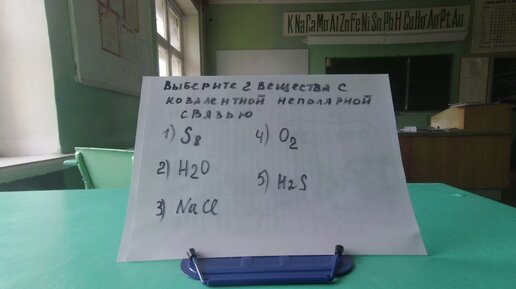 K Na Ca Mg Al Zn Fe Ni Sn Pb H Cu Hg Ag Pt Au
ВЫБЕРИТЕ 2 ВЕЩЕСТВА С
КОВАЛЕНТНОЙ НЕПОЛЯРНОЙ
СВЯЗЬЮ
1) S8 4) O2
2) H2O
5) H2S
3) NaCl